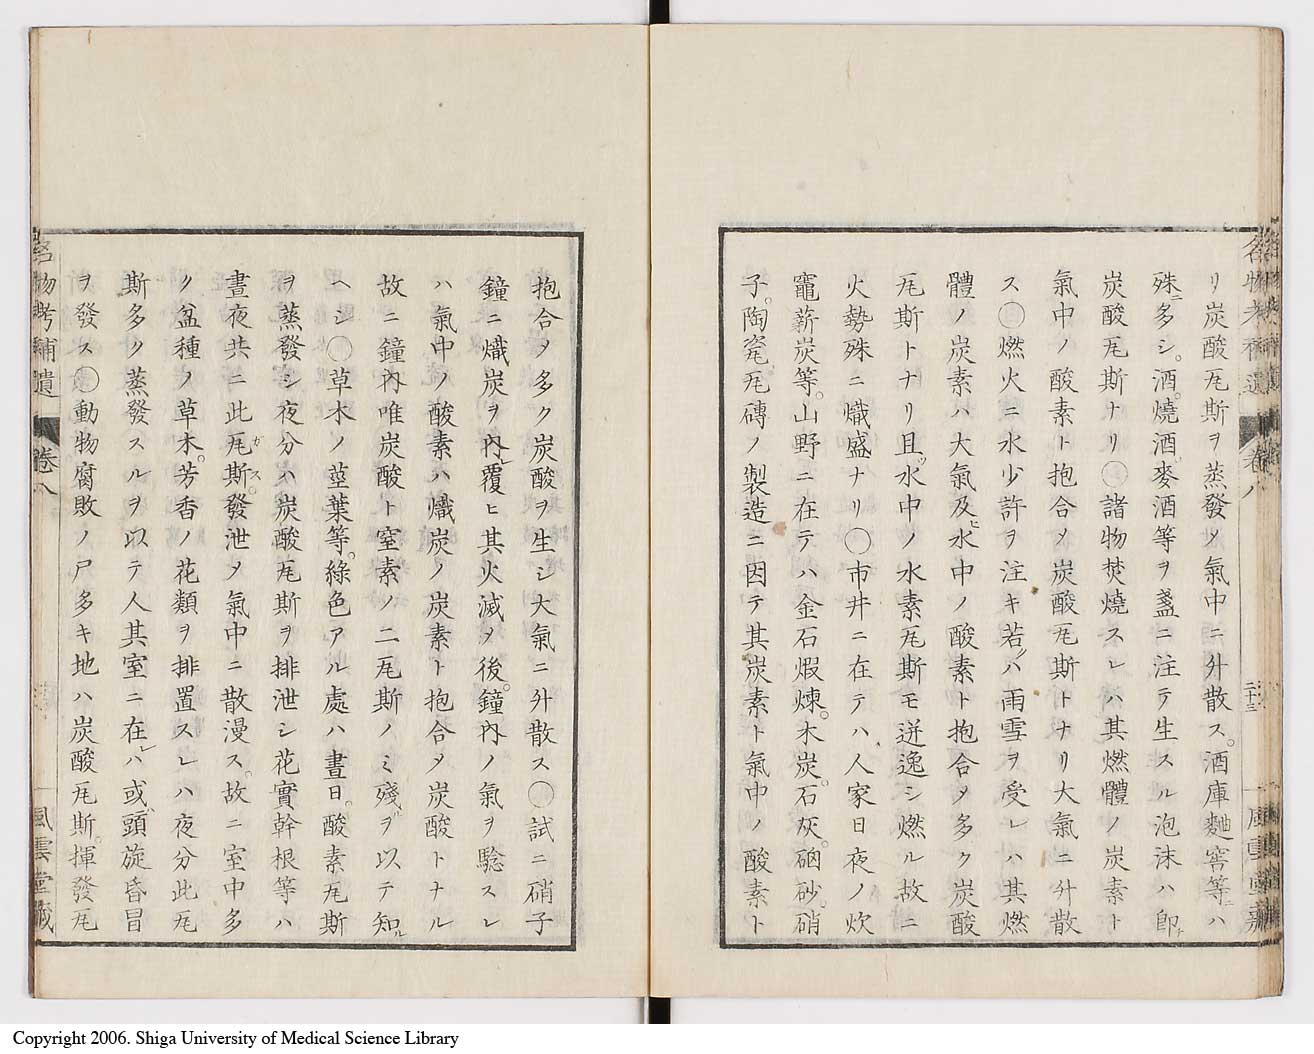 リ炭酸瓦斯ヲ蒸發〆氣中ニ外散ス。酒庫麯窖等ニハ
殊ニ多シ。酒。燒酒。麥酒等ヲ盞ニ注テ生スル泡沫ハ即チ
炭酸瓦斯ナリ〇諸物焚燒スレハ其燃體ノ炭素ト
氣中ノ酸素ト抱合〆炭酸瓦斯トナリ大氣ニ外散
ス〇燃火ニ水少許ヲ注キ若ハ雨雪ヲ受レハ其燃
體ノ炭素ハ大氣及ヒ水中ノ酸素ト抱合〆多ク炭酸
瓦斯トナリ且ツ水中ノ水素瓦斯モ迸逸シ燃ル故ニ
火勢殊ニ熾盛ナリ〇市井ニ在テハ人家日夜ノ炊
竈薪炭等。山野ニ在テハ金石煆煉。木炭。石灰。硇砂。硝
子。陶瓷。瓦磚ノ製造ニ因テ其炭素ト氣中ノ酸素ト
抱合〆多ク炭酸ヲ生シ大氣ニ外散ス〇試ニ硝子
鐘ニ熾炭ヲ內レ覆ヒ其火滅〆後。鐘內ノ氣ヲ驗スレ
ハ氣中ノ酸素ハ熾炭ノ炭素ト抱合〆炭酸トナル
故ニ鐘內唯炭酸ト窒素ノ二瓦斯ノミ殘ル ヲ以テ知ル
ヘシ〇草木ノ莖葉等。綠色アル處ハ晝日。酸素瓦斯
ヲ蒸發シ夜分ハ炭酸瓦斯ヲ排泄シ花實幹根等ハ
晝夜共ニ此瓦斯ガス。發泄〆氣中ニ散漫ス。故ニ室中多
ク盆種ノ草木。芳香ノ花類ヲ排置スレハ夜分此瓦
斯多ク蒸發スルヲ以テ人其室ニ在レハ或ハ頭旋昏冒
ヲ發ス〇動物腐敗ノ尸多キ地ハ炭酸瓦斯。揮發瓦
名物考補遺
卷八
風雲堂藏
Copyright 2006. Shiga University of Medical Science Library